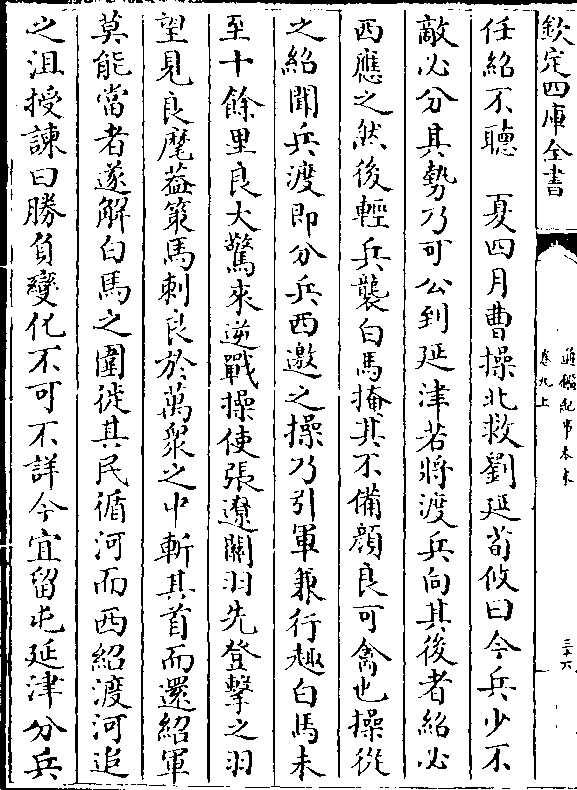 欽定四庫全書
通鑑紀事本末
卷九上
三十六
任紹不聽　夏四月曹操北救劉延荀攸曰今兵少不
敵必分其勢乃可公到延津若將渡兵向其後者紹必
西應之然後輕兵襲白馬掩其不備顔良可禽也操從
之紹聞兵渡即分兵西邀之操乃引軍兼行趣白馬未
至十餘里良大驚來逆戰操使張遼關羽先登擊之羽
望見良麾葢策馬刺良於萬衆之中斬其首而還紹軍
莫能當者遂解白馬之圍徙其民循河而西紹渡河追
之沮授諫曰勝負變化不可不詳今宜留屯延津分兵